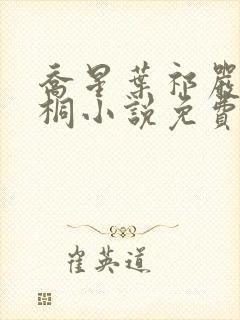 喬星葉祁嚴
桐小說免費
崔英道